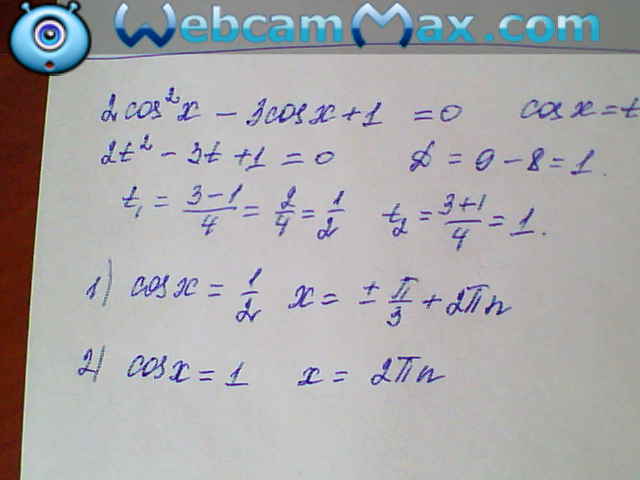 WebcamMax.com
2cos²x − 3cosx + 1 = 0 cosx = t
2t² − 3t + 1 = 0 D = 9 − 8 = 1.
t₁ = (3−1)/4 = 2/4 = 1/2 t₂ = (3+1)/4 = 1.
1) cosx = 1/2 x = ± π/3 + 2πn
2) cosx = 1 x = 2πn